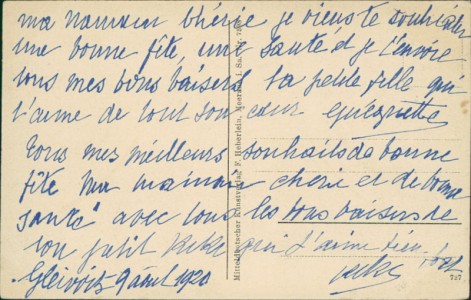 ma maman chérie je viens te souhaiter
une bonne fête, une santé et je t'envoie
tous mes bons baisers ta petite fille qui
t'aime de tout son cœur
Tous mes meilleurs souhaits de bonne
fête ma maman chérie et de bonne
santé avec tous les bons baisers de
ton petit qui t'aime bien fort
Gleiwitz 9 août 1920
Mitteldeutscher Kunstverlag, F. Häberlein, Meerane i. Sa.
727